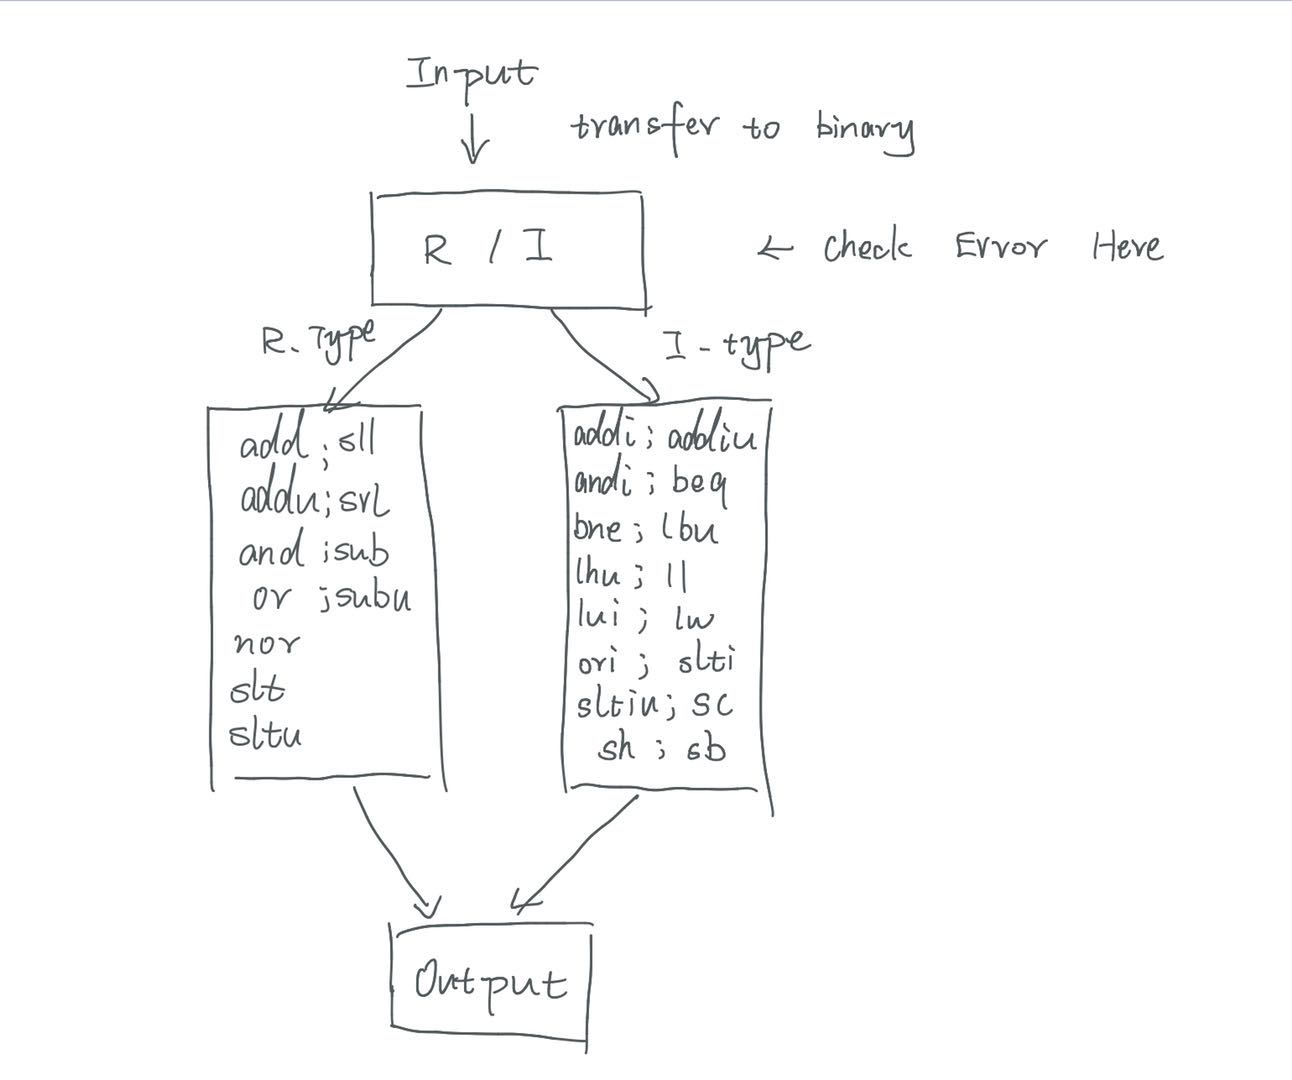 Input
transfer to binary
R / I
← Check Error Here
R. Type
I - type
add ; sll
addu; srl
and ; sub
or ; subu
nor
slt
sltu
addi ; addiu
andi ; beq
bne ; lbu
lhu ; ll
lui ; lw
ori ; slti
sltiu; sc
sh ; sb
Output